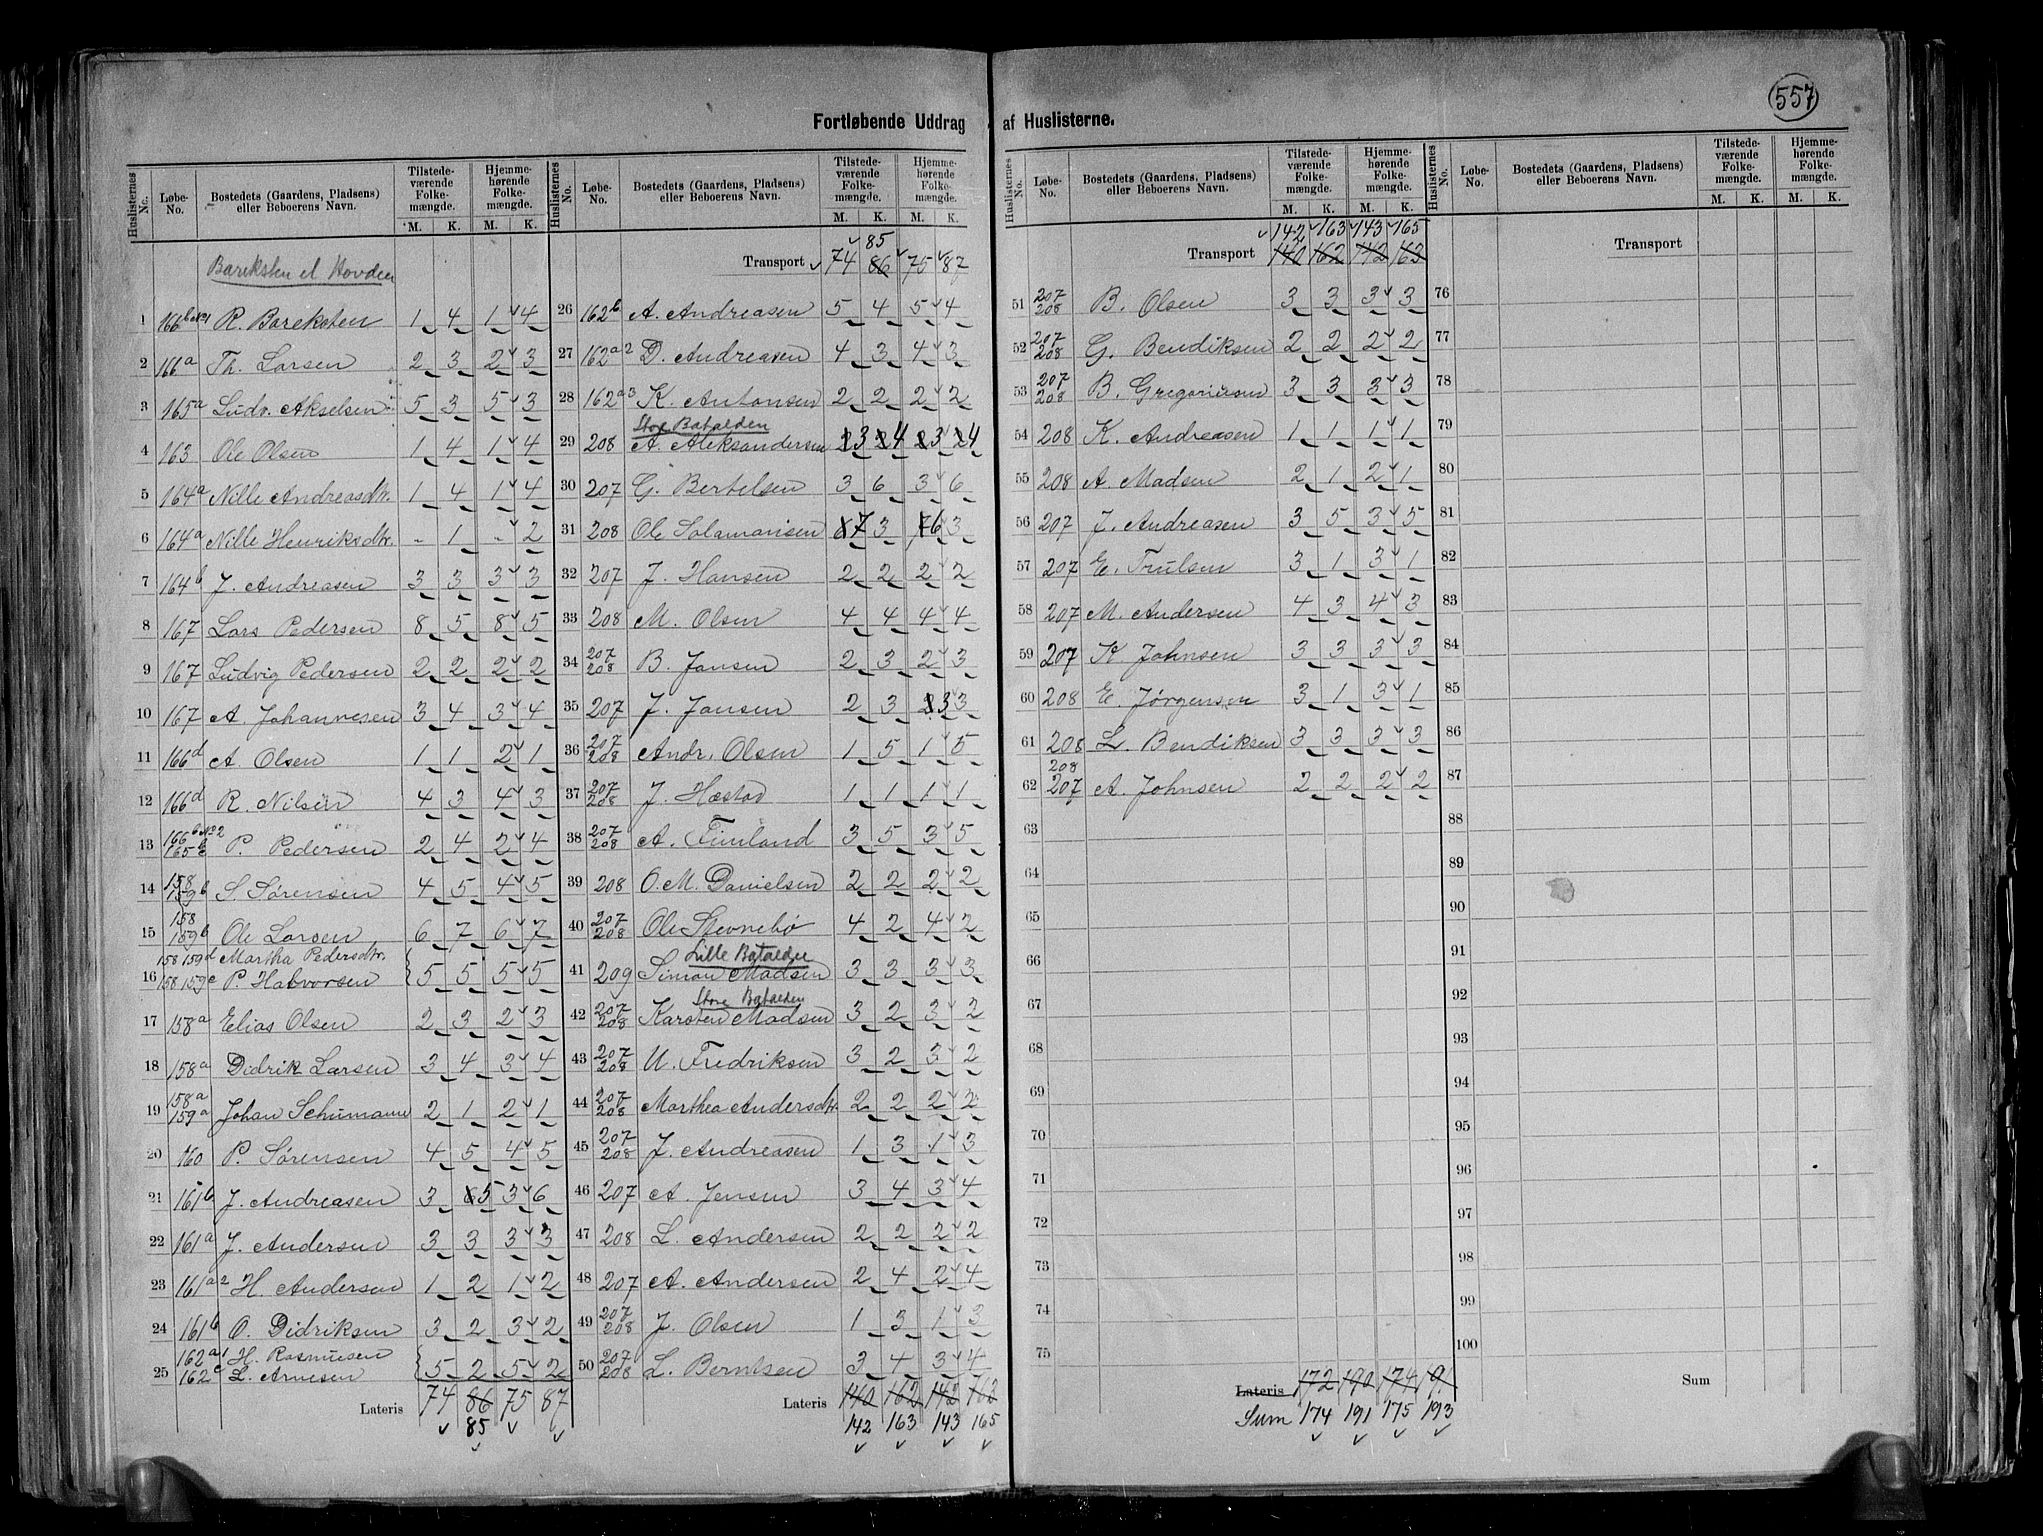 557
Fortløbende Uddrag af Huslisterne.
Huslisternes No. Løbe-No. Bostedets (Gaardens, Pladsens) eller Beboerens Navn. Tilstedeværende Folkemængde. M. K. Hjemmehørende Folkemængde. M. K.
Bareksten et Hovden
1 166 b No 1 R. Bareksten 1 4 1 4
2 166a Th. Larsen 2 3 2 3
3 165a Ludv. Akselsen 5 3 5 3
4 163 Ole Olsen 1 4 1 4
5 164a Nille Andreasdtr. 1 4 1 4
6 164a Nille Henriksdtr. - 1 - 2
7 164b J. Andreasen 3 3 3 3
8 167 Lars Pedersen 8 5 8 5
9 167 Ludvig Pedersen 2 2 2 2
10 167 A. Johannesen 3 4 3 4
11 166d A. Olsen 1 1 2 1
12 166d R. Nilsen 4 3 4 3
13 166 b No 2 165 P. Pedersen 2 4 2 4
14 158 159b S. Sørensen 4 5 4 5
15 158 159b Ole Larsen 6 7 6 7
158 159d Martha Pedersdtr.
16 158 159c P. Halvorsen 5 5 5 5
17 158a Elias Olsen 2 3 2 3
18 158a Didrik Larsen 3 4 3 4
19 158a 159a Johan Schumann 2 1 2 1
20 160 P. Sørensen 4 5 4 5
21 161b J. Andreasen 3 5 3 6
22 161a J. Andersen 3 3 3 3
23 161a2 H. Andersen 1 2 1 2
24 161b O. Didriksen 3 2 3 2
162a1 H. Rasmusen
25 162c L. Arnesen 5 2 5 2
Lateris 74 86 75 87
85
Huslisternes No. Løbe-No. Bostedets (Gaardens, Pladsens) eller Beboerens Navn. Tilstedeværende Folkemængde. M. K. Hjemmehørende Folkemængde. M. K.
85
Transport 74 86 75 87
26 162b A. Andreasen 5 4 5 4
27 162a2 D. Andreasen 4 3 4 3
28 162a3 K. Antonsen 2 2 2 2
Store Batalden
29 208 A. Aleksandersen 2 3 2 4 2 3 2 4
30 207 G. Bertelsen 3 6 3 6
31 208 Ole Salamonsen 8 7 3 7 6 3
32 207 J. Hansen 2 2 2 2
33 208 M. Olsen 4 4 4 4
34 207 208 B. Jansen 2 3 2 3
35 207 J. Jansen 2 3 2 3 3
36 207 208 Andr. Olsen 1 5 1 5
37 207 208 J. Hæstad 1 1 1 1
38 207 208 A. Fimland 3 5 3 5
39 208 O. M. Danielsen 2 2 2 2
40 207 208 Ole Stevnebø 4 2 4 2
Lille Batalden
41 209 Simon Madsen 3 3 3 3
Store Batalden
42 207 208 Karsten Madsen 3 2 3 2
43 207 208 U. Fredriksen 3 2 3 2
44 207 208 Marthea Andersdtr. 2 2 2 2
45 207 208 J. Andreasen 1 3 1 3
46 207 A. Jensen 3 4 3 4
47 208 L. Andersen 2 2 2 2
48 207 A. Andersen 2 4 2 4
49 207 208 J. Olsen 1 3 1 3
50 207 208 L. Berntsen 3 4 3 4
Lateris 140 162 142 162
142 163 143 165
Huslisternes No. Løbe-No. Bostedets (Gaardens, Pladsens) eller Beboerens Navn. Tilstedeværende Folkemængde. M. K. Hjemmehørende Folkemængde. M. K.
142 163 143 165
Transport 140 162 142 163
51 207 208 B. Olsen 3 3 3 3
52 207 208 G. Bendiksen 2 2 2 2
53 207 208 B. Gregoriusen 3 3 3 3
54 208 K. Andreasen 1 1 1 1
55 208 A. Madsen 2 1 2 1
56 207 J. Andreasen 3 5 3 5
57 207 E. Trulsen 3 1 3 1
58 207 M. Andersen 4 3 4 3
59 207 K. Johnsen 3 3 3 3
60 208 E. Jørgensen 3 1 3 1
61 208 L. Bendiksen 3 3 3 3
62 208 207 A. Johnsen 2 2 2 2
63
64
65
66
67
68
69
70
71
72
73
74
75
Lateris 172 190 174 191
Sum 174 191 175 193
Huslisternes No. Løbe-No. Bostedets (Gaardens, Pladsens) eller Beboerens Navn. Tilstedeværende Folkemængde. M. K. Hjemmehørende Folkemængde. M. K.
Transport
76
77
78
79
80
81
82
83
84
85
86
87
88
89
90
91
92
93
94
95
96
97
98
99
100
Sum